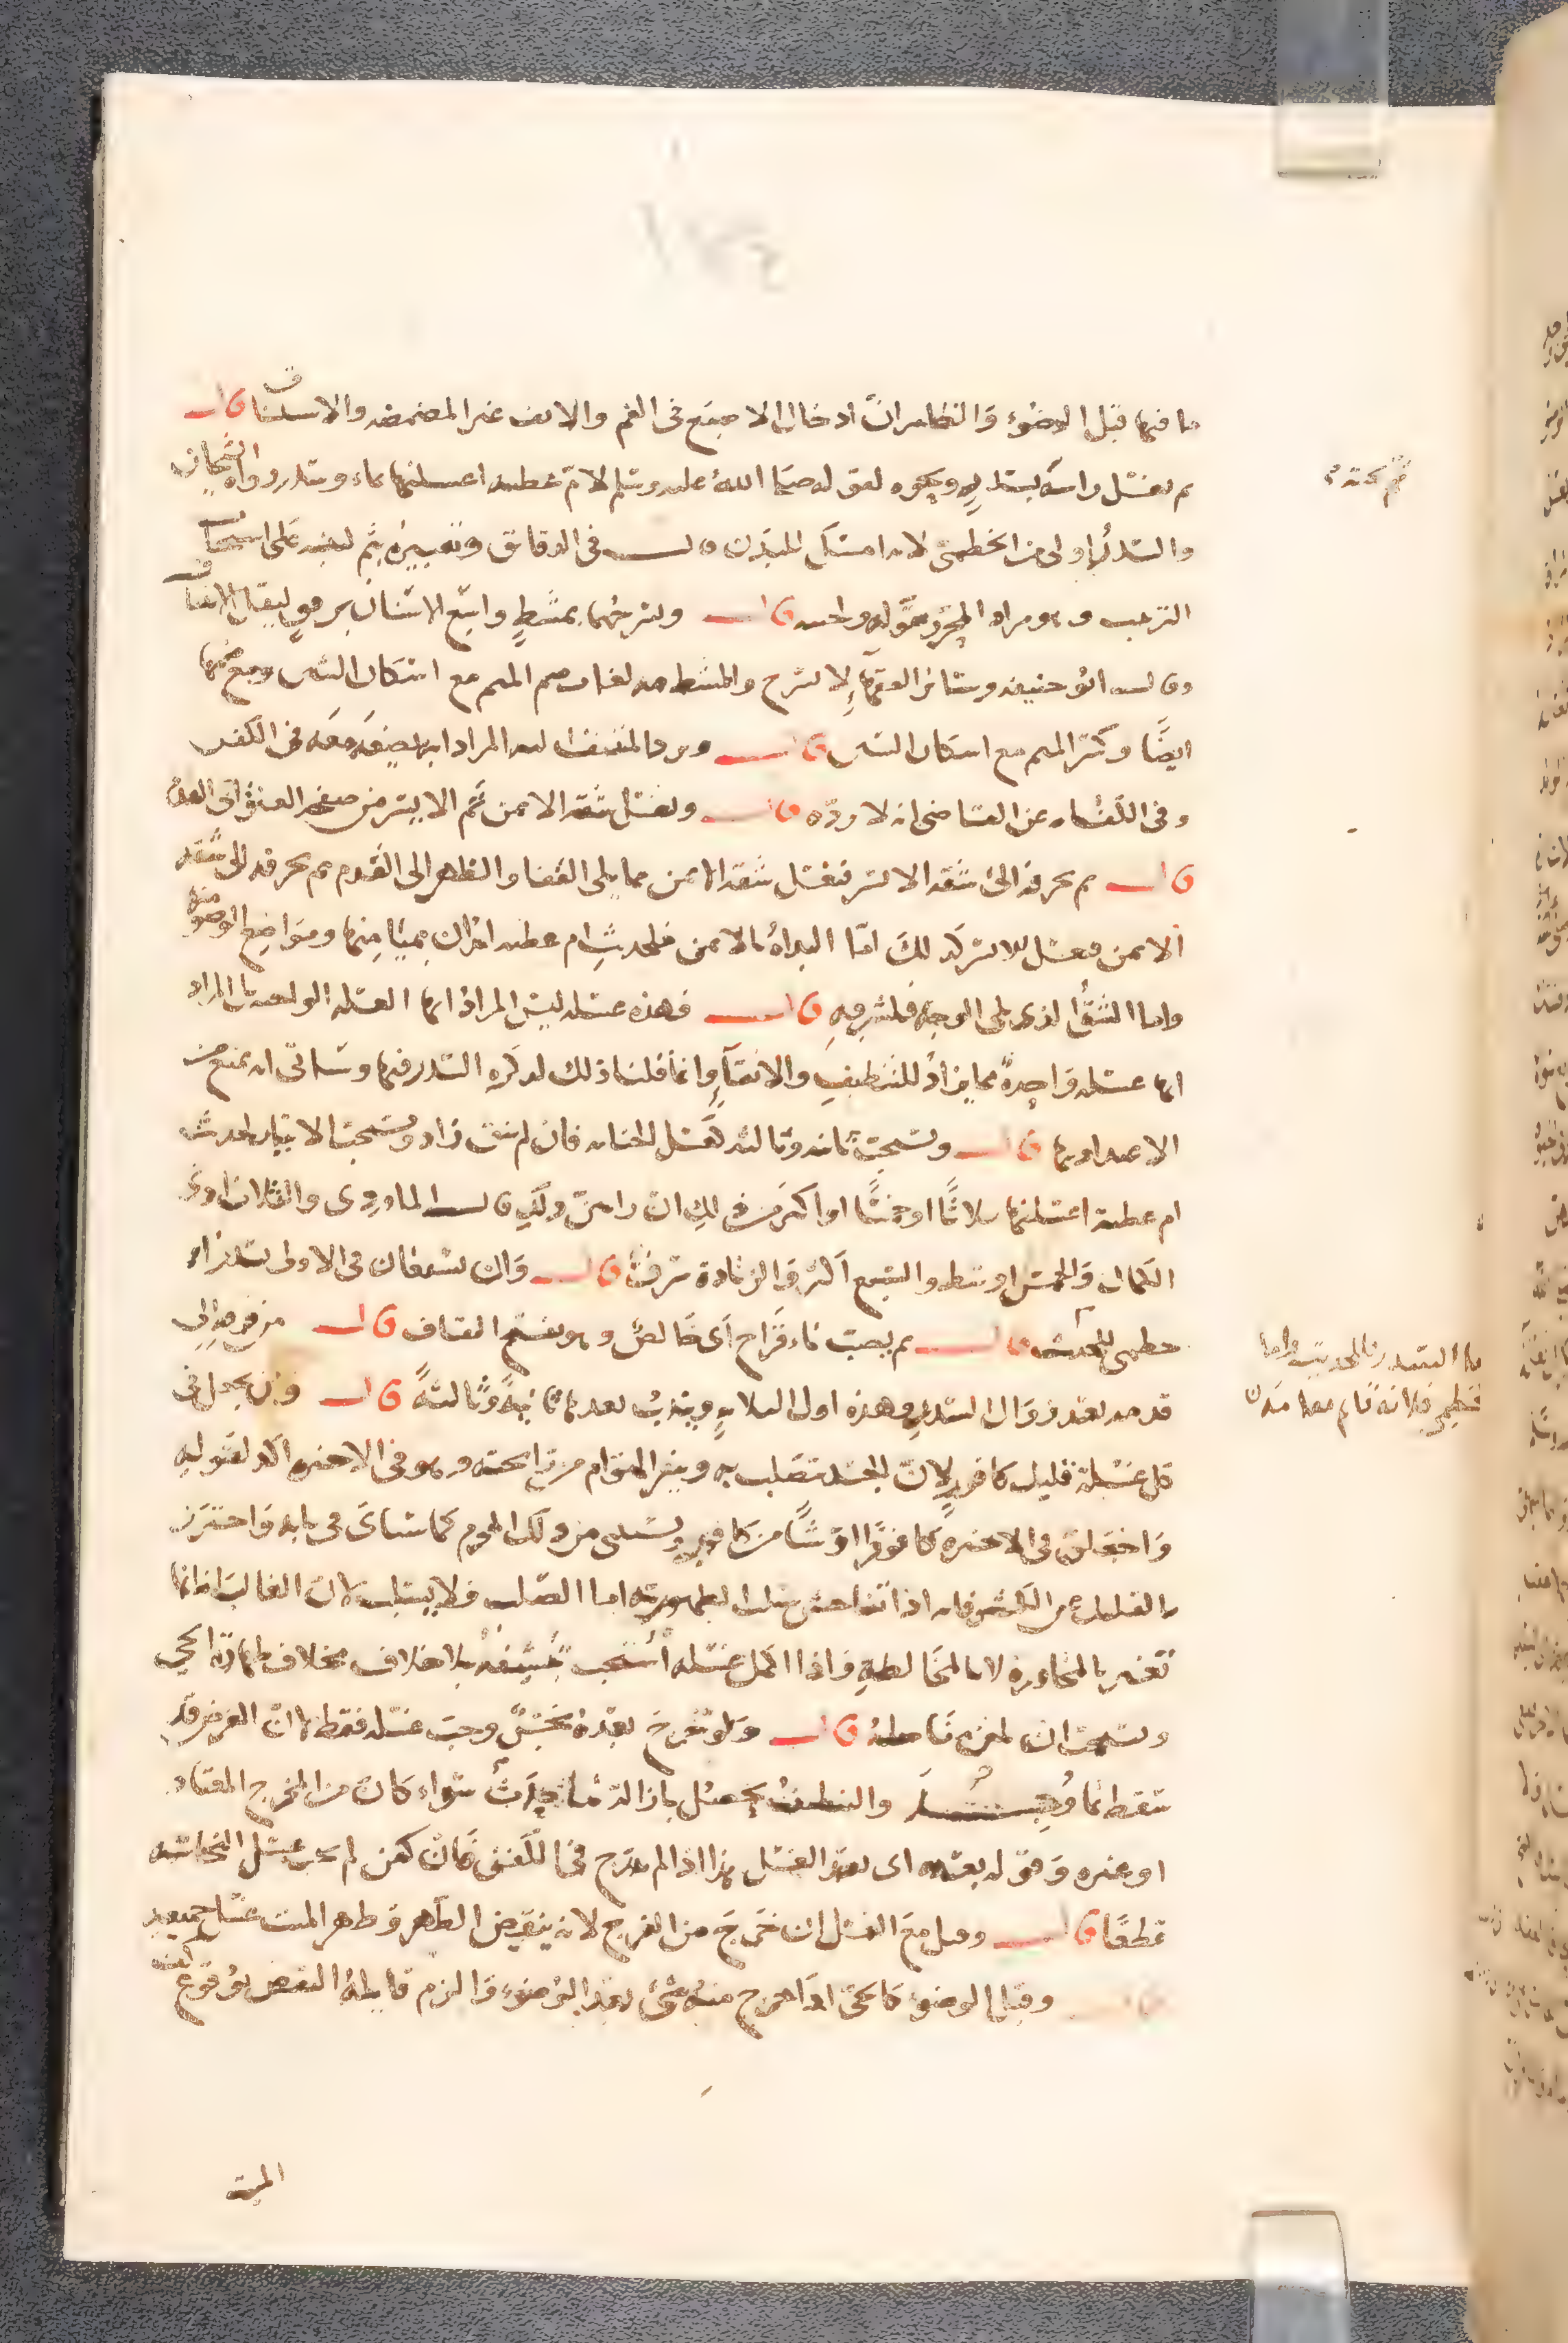 ما فيها قبل الوضوء والظاهر ان ادخال الاصبع في الفم والانف غير المضمضه والاستنشاق قال
ثم يغسل راسه بسدر ونحوه لقوله صلى الله عليه وسلم لام عطيه اغسلنها بماء وسدر رواه الشيخان
والسدر اولى من الخطمي لانه امسك للبدن قال في الدقائق وتعبيره بثم لينبه على استحباب
الترتيب وهو مراد المحرر بقوله ولحيته قال ويسرحهما بمشط واسع الاسنان برفق ليقل الانتتاف
وقال ابو حنيفه وسائر الفقهاء لا يسرح والمشط فيه لغات ضم الميم مع اسكان الشين ومع ضمها
ايضا وكسر الميم مع اسكان الشين قال ويرد المنتتف اليه المراد انه يضعه معه في الكفن
وفي الكفايه عن القاضي انه لا يرده قال ويغسل شقه الايمن ثم الايسر من صفحة العنق الى القدم
قال ثم يحرفه الى شقه الايسر فيغسل شقه الايمن مما يلي القفا والظهر الى القدم ثم يحرفه الى شقه
الايمن فيغسل الايسر كذلك اما البداة بالايمن فلحديث ام عطيه ابدان بميامنها ومواضع الوضوء منها
واما الشق الذي يلي الوجه فلشرفه قال فهذه غسله ليس المراد انها الغسله الواحده بل المراد
انها غسله واحدة مما يزاد للتنظيف والانقاء وانما قلنا ذلك لذكره السدر فيها وسياتي انه يمنع من
الاعتداد بها قال وتستحب ثانيه وثالثه كغسل الجنابه فان لم تنق زاد ويستحب الايتار لحديث
ام عطيه اغسلنها ثلاثا او خمسا او اكثر من ذلك ان رايتن ذلك قال الماوردي والثلاث ادنى
الكمال والخمس اوسط والسبع اكثر والزيادة سرف قال وان يستعان في الاولى بسدر او
خطمي للحديث قال ثم يصب ماء قراح اي خالص وهو بفتح القاف قال من فرقه الى
قدمه بعد زوال السدر وهذه اول الثلاث ويندب بعدها ثانية وثالثة قال وان يجعل في
كل غسلة قليل كافور لان الجسد تصلب به وينفر الهوام من رائحته وهو في الاخيره اكد لقوله
واجعلن في الاخيره كافورا او شيئا من كافور ويستثنى من ذلك المحرم كما سياتى في بابه واحترز
بالقليل عن الكثير فانه اذا تفاحش سلب الطهوريه اما الصلب فلا يسلب لان الغالب انه انما
تغير بالمجاوره لا بالمخالطه واذا اكمل غسله استحب تنشيفه بلا خلاف بخلاف طهارة الحي
ويستحب ان قال ولو خرج بعده نجس وجب غسله فقط لان الفرض قد
سقط بما وجد والتنظيف يحصل بازالة ما حدث سواء كان من المخرج المعتاد
او غيره وقوله بعده اى بعد الغسل هذا اذا لم يدرج في الكفن فان كفن لم يجب غسل النجاسه
قطعا قال وقيل مع الغسل ان خرج من الفرج لانه ينقض الطهر وطهر الميت غسل جميعه
قال وقيل الوضوء كالحي اذا خرج منه شيء بعد الوضوء والزم قايله النقض بوقوع
الميت
اما السدر فللحديث واما
الخطمي فلانه قام مقامه